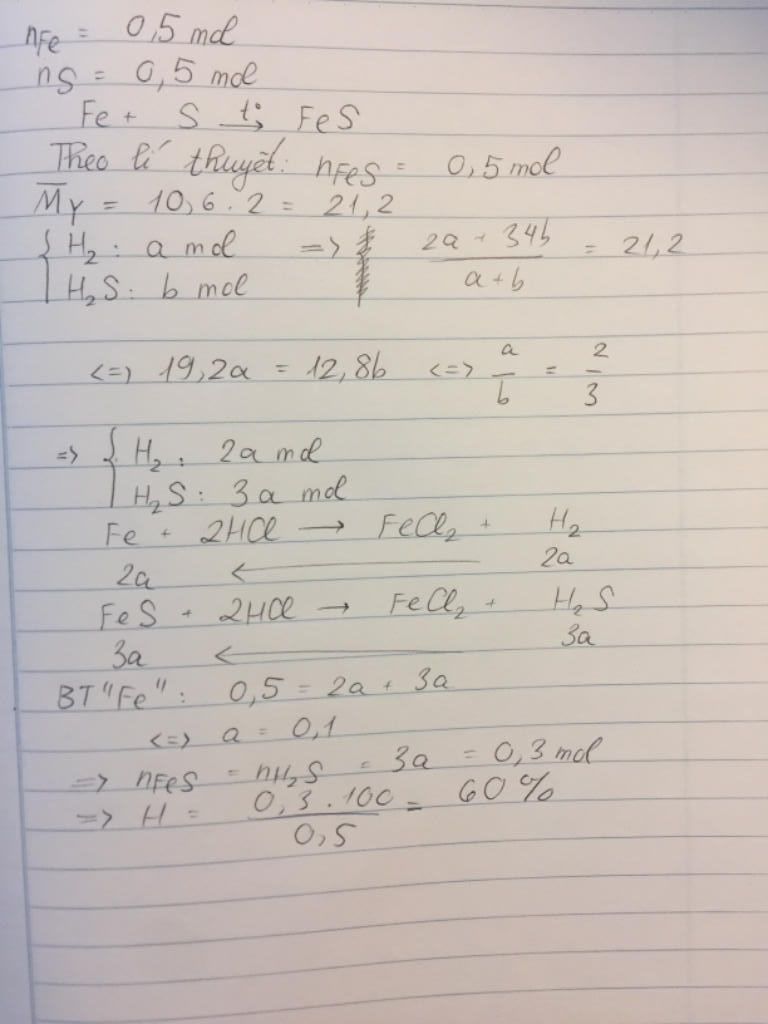 nFe = 0,5 mol
nS = 0,5 mol
Fe + S t°→ FeS
Theo lí thuyết: nFeS = 0,5 mol
M̅Y = 10,6 . 2 = 21,2
{ H₂ : a mol => (2a + 34b)/(a + b) = 21,2
H₂S : b mol
<=> 19,2a = 12,8b <=> a/b = 2/3
=> { H₂ : 2a mol
H₂S : 3a mol
Fe + 2HCl → FeCl₂ + H₂
2a ← 2a
FeS + 2HCl → FeCl₂ + H₂S
3a ← 3a
BT "Fe" : 0,5 = 2a + 3a
<=> a = 0,1
=> nFeS = nH₂S = 3a = 0,3 mol
=> H = (0,3 . 100)/0,5 = 60%